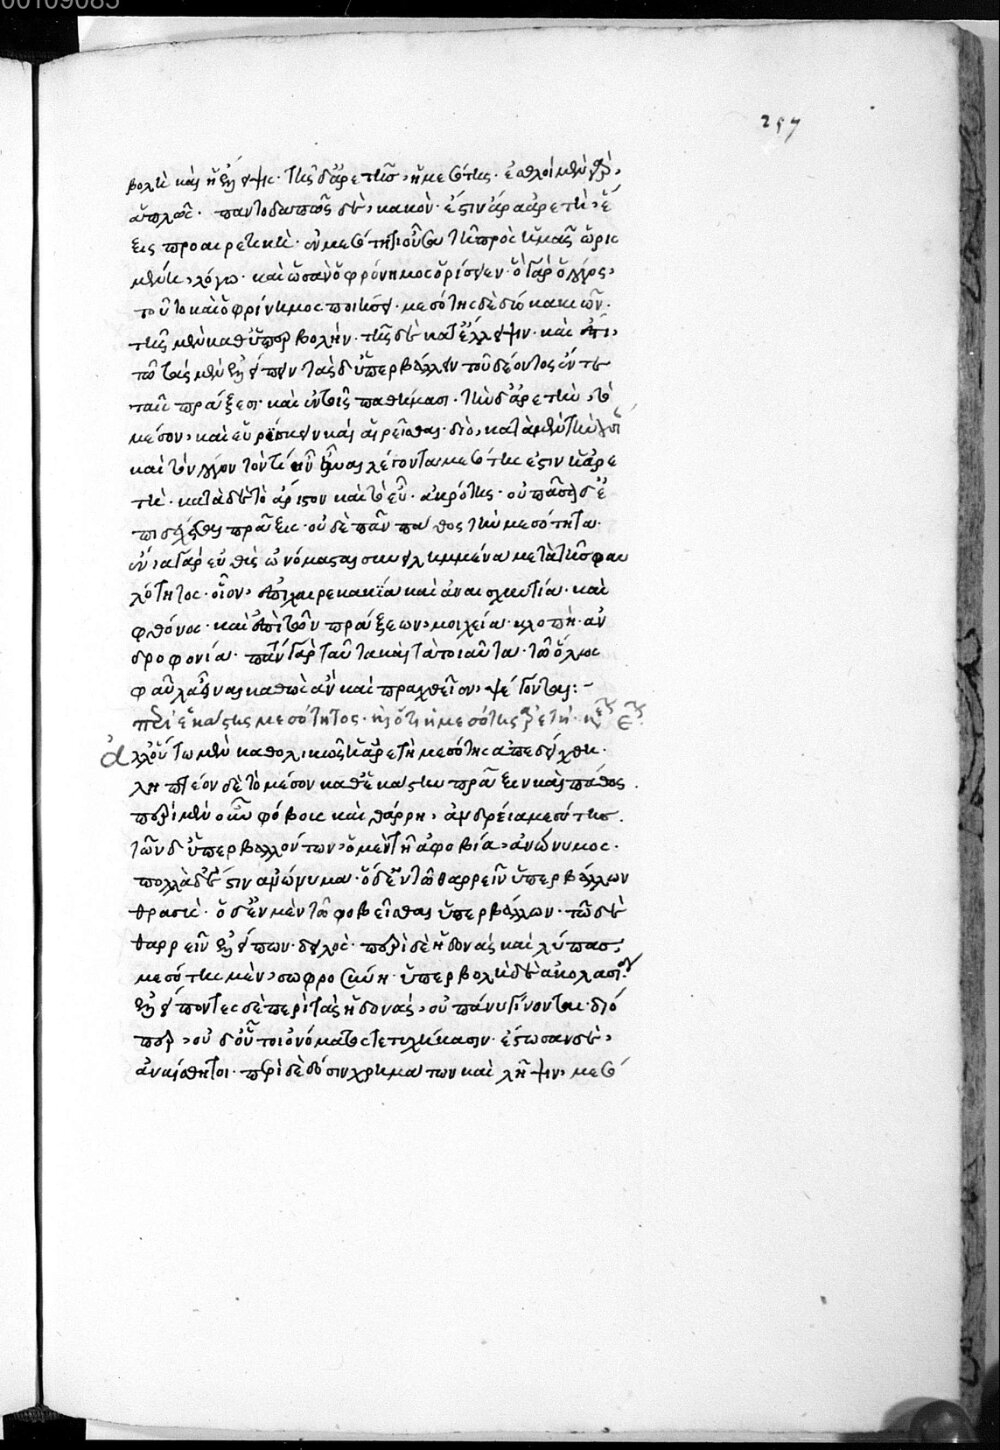 00109085
257
βολὴ καὶ ἡ ἔλλειψις· τῆς δ' ἀρετῆς, ἡ μεσότης· ἐσθλοὶ μὲν γὰρ,
ἁπλῶς· παντοδαπῶς δὲ, κακοί· ἔστιν ἄρα ἀρετὴ, ἕ
ξις προαιρετικὴ· ἐν μεσότητι οὖσα τῇ πρὸς ἡμᾶς ὡρισ
μένη, λόγω· καὶ ὡς ἂν ὁ φρόνιμος ὁρίσειεν· ὃ γὰρ ὁ λόγος,
τοῦτο καὶ ὁ φρόνιμος ποιήσει· μεσότης δὲ δύο κακιῶν·
τῆς μὲν καθ' ὑπερβολήν· τῆς δὲ κατ' ἔλλειψιν· καὶ ἔτι,
τῶ τὰς μὲν ἐλλείπειν τὰς δ' ὑπερβάλλειν τοῦ δέοντος ἔν τε
ταῖς πράξεσι· καὶ ἐν τοῖς παθήμασι· τὴν δ' ἀρετὴν, τὸ
μέσον, καὶ εὑρίσκειν καὶ αἱρεῖσθαι· διὸ, κατὰ μὲν τὴν οὐσί
καὶ τὸν λόγον τὸν τί ἦν εἶναι λέγοντα μεσότης ἐστὶν ἡ ἀρε
τή· κατὰ δὲ τὸ ἄριστον καὶ τὸ εὖ· ἀκρότης· οὐ πᾶσα δ' ἐ
πιδέχεται πρᾶξις· οὐδὲ πᾶν πάθος τὴν μεσότητα·
ἔνια γὰρ εὐθὺς ὠνόμασται συνειλημμένα μετὰ τῆς φαυ
λότητος· οἷον, ἐπιχαιρεκακία καὶ ἀναισχυντία· καὶ
φθόνος· καὶ ἐπὶ τῶν πράξεων, μοιχεία· κλοπή· ἀν
δροφονία· πάντα γὰρ ταῦτα καὶ τὰ τοιαῦτα· τῶ ὅλως
φαῦλα εἶναι καθὼς ἂν καὶ πραχθεῖεν, ψέγονται:-
περὶ ἑκάστης μεσότητος·
Ἀλλ' οὕτω μὲν καθολικῶς ἡ ἀρετὴ μεσότης ἀπεδείχθη·
ληπτέον δὲ τὸ μέσον καθ' ἑκάστην πρᾶξιν καὶ πάθος.
περὶ μὲν οὖν φόβους καὶ θάρρη, ἀνδρεία μεσότης.
τῶν δ' ὑπερβαλλόντων, ὁ μὲν τῇ ἀφοβία, ἀνώνυμος·
πολλὰ δ' ἐστὶν ἀνώνυμα· ὁ δ' ἐν τῶ θαρρεῖν ὑπερβάλλων
θρασύς· ὁ δ' ἐν μὲν τῶ φοβεῖσθαι ὑπερβάλλων· τῶ δὲ
θαρρεῖν ἐλλείπων· δειλός· περὶ δὲ ἡδονὰς καὶ λύπας,
μεσότης μὲν, σωφροσύνη· ὑπερβολὴ δὲ ἀκολασία
ἐλλείποντες δὲ περὶ τὰς ἡδονὰς, οὐ πάνυ γίνονται· διό
περ, οὐδ' οὗτοι ὀνόματος τετυχήκασιν· ἔστωσαν δὲ,
ἀναίσθητοι· περὶ δὲ δόσιν χρημάτων καὶ λῆψιν, μεσό